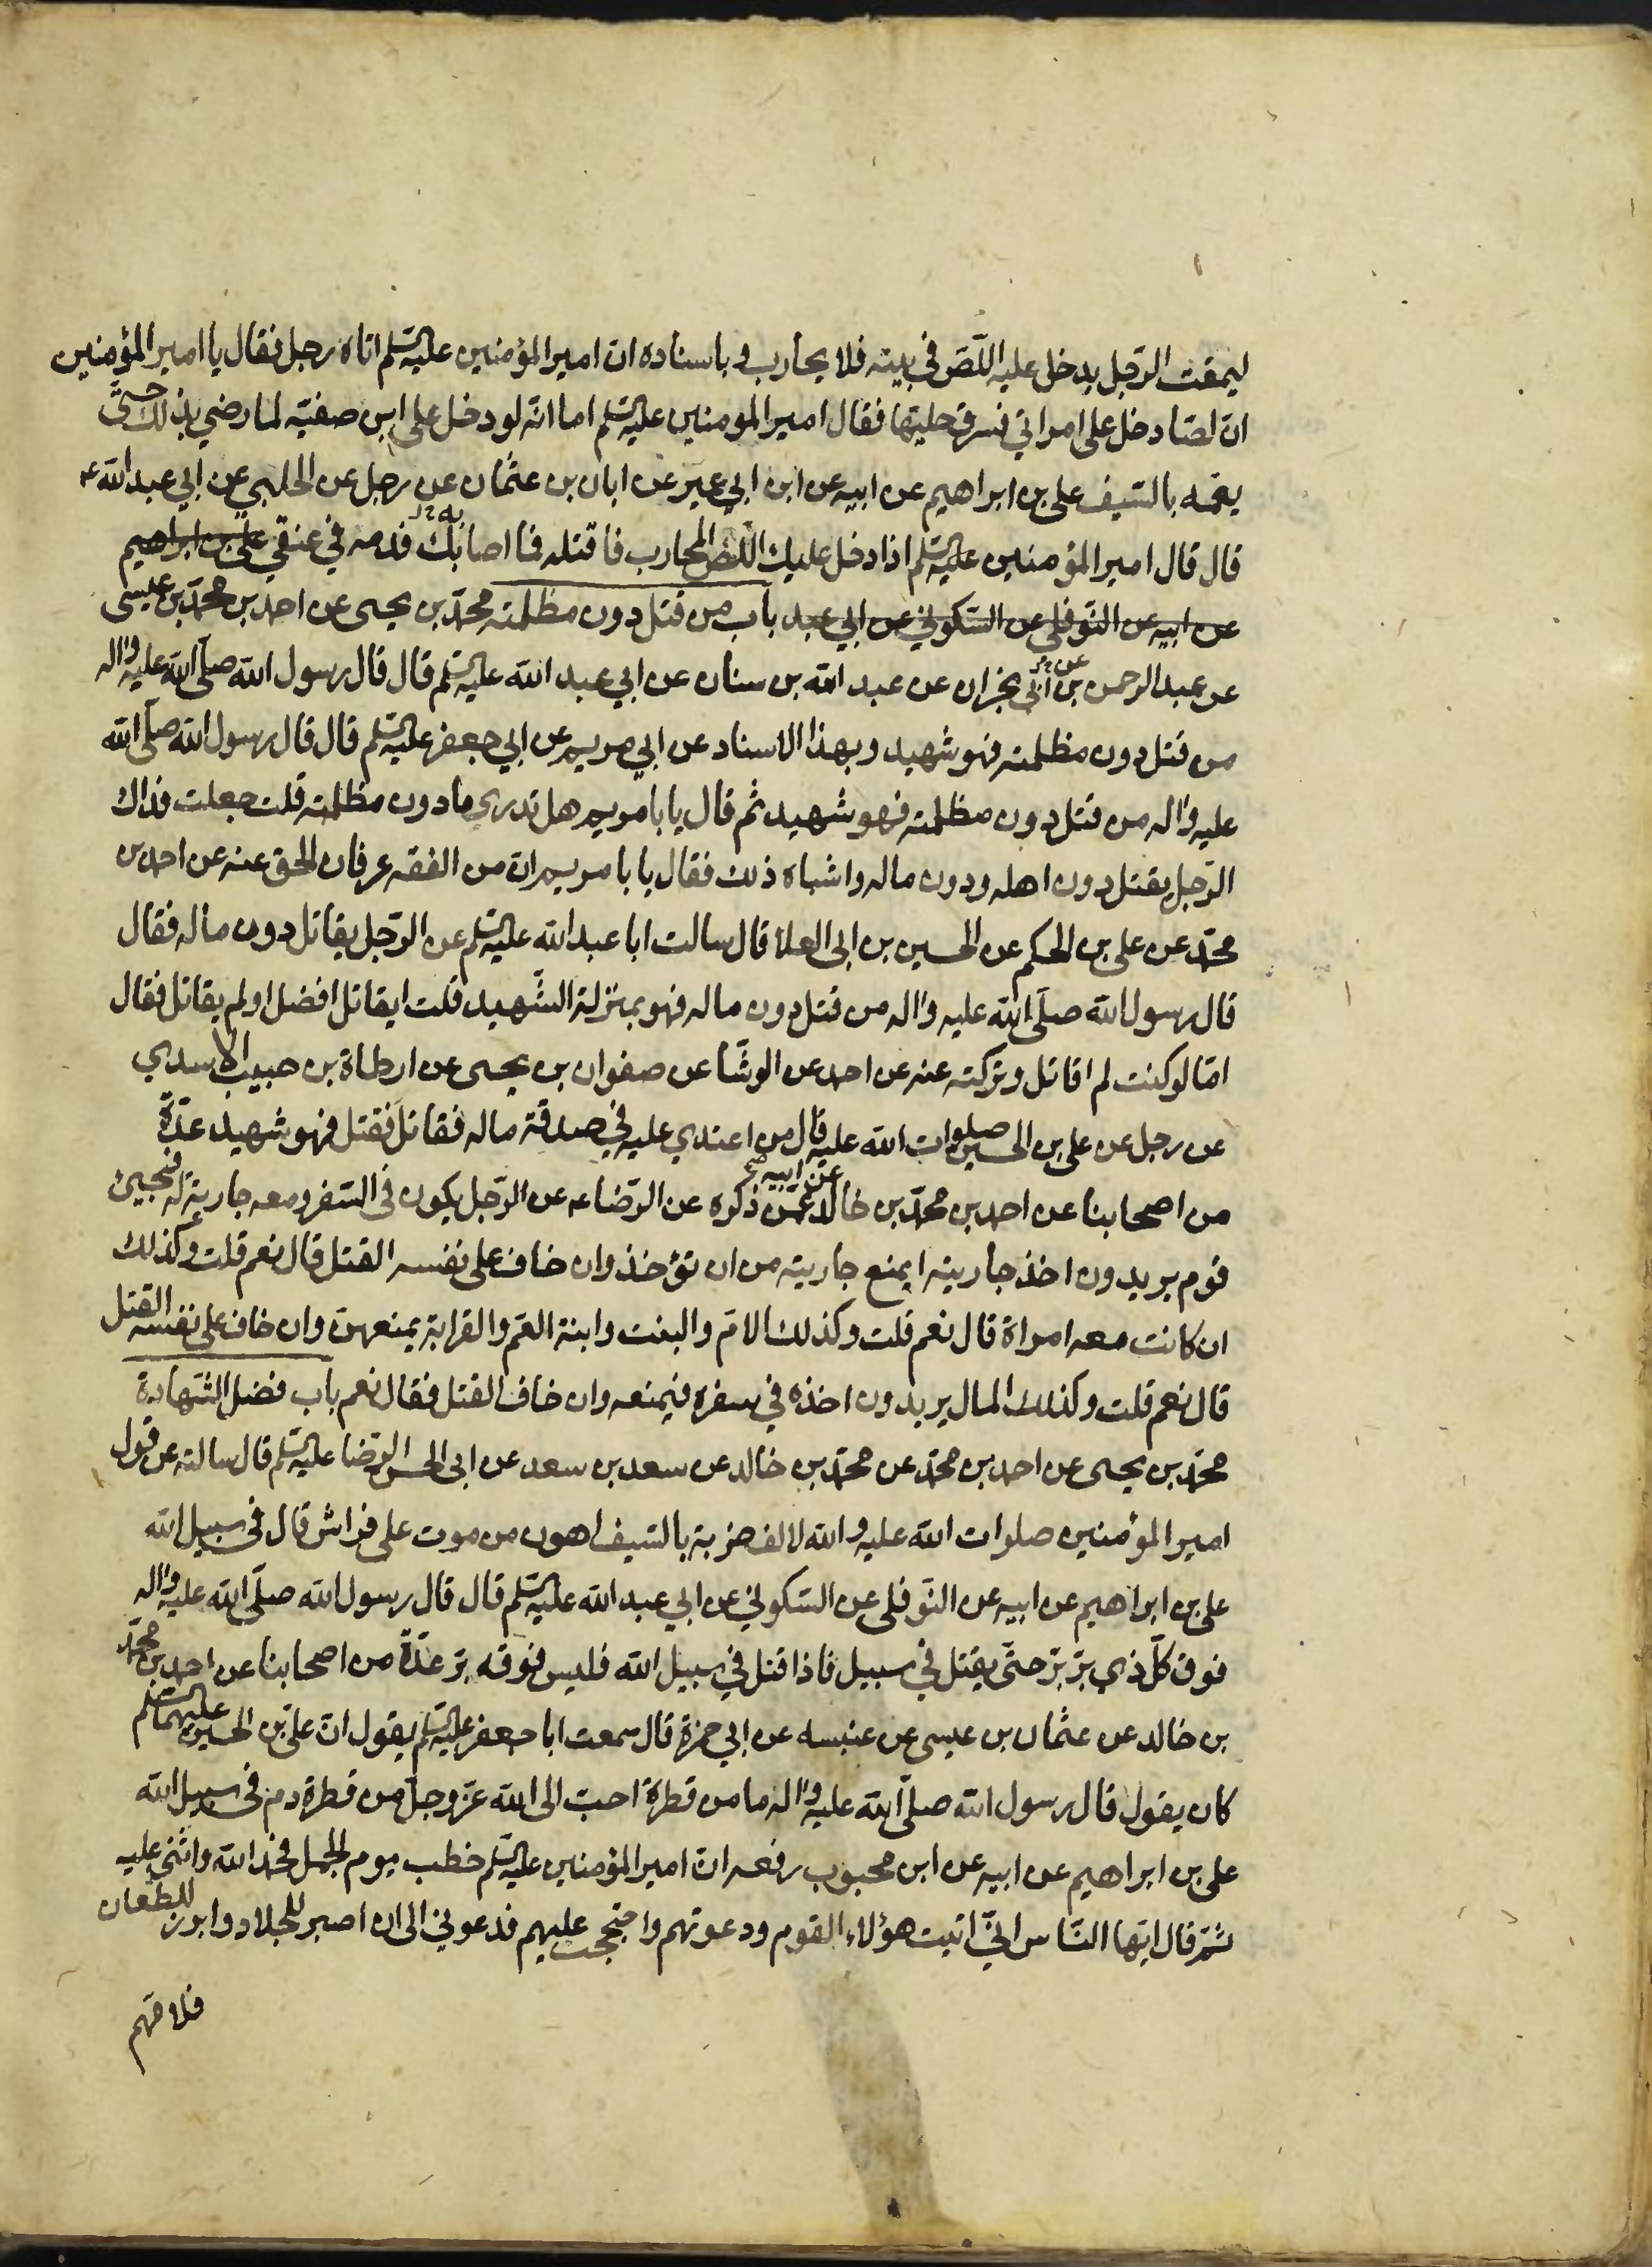 ليمقت الرّجل يدخل عليه اللّصّ في بيته فلا يحارب و باسناده ان امير المؤمنين عليه السّلم اتاه رجل فقال يا امير المؤمنين
انّ لصّا دخل على امراتي فسرق حليتها فقال امير المومنين عليه السّلم اما انّه لو دخل على ابن صفيّة لما رضي بذلك حتّى
يعمّه بالسّيف علي بن ابراهيم عن ابيه عن ابن ابي عمير عن ابان بن عثمان عن رجل عن الحلبي عن ابي عبد الله ع
قال قال امير المؤمنين عليه السّلم اذا دخل عليك اللّصّ المحارب فاقتله فما اصابك فدمه في عنقي علي بن ابراهيم
عن ابيه عن النّوفلي عن السّكوني عن ابي عبد باب من قتل دون مظلمته محمّد بن يحيى عن احمد بن محمّد بن عيسى
عن عبد الرحمن بن ابي نجران عن عبد الله بن سنان عن ابي عبد الله عليه السّلم قال قال رسول الله صلّى الله عليه واله
من قتل دون مظلمته فهو شهيد و بهذا الاسناد عن ابي مريم عن ابي جعفر عليه السّلم قال قال رسول الله صلّى الله
عليه واله من قتل دون مظلمته فهو شهيد ثم قال يا با مريم هل تدري ما دون مظلمته قلت جعلت فداك
الرّجل يقتل دون اهله ودون ماله واشباه ذلك فقال يا با مريم ان من الفقه عرفان الحق عنه عن احمد بن
محمّد عن علي بن الحكم عن الحسين بن ابي العلا قال سالت ابا عبد الله عليه السّلم عن الرّجل يقاتل دون ماله فقال
قال رسول الله صلّى الله عليه واله من قتل دون ماله فهو بمنزلة الشّهيد قلت ايقاتل افضل او لم يقاتل فقال
امّا لو كنت لم اقاتل وتركته عنه عن احمد عن الوشّا عن صفوان بن يحيى عن ارطاة بن حبيب الاسدي
عن رجل عن علي بن الحسين صلوات الله عليه قال من اعتدي عليه في صدقة ماله فقاتل فقتل فهو شهيد عدّة
من اصحابنا عن احمد بن محمّد بن خالد عن ابيه صح عمّن ذكره عن الرّضا ع عن الرّجل يكون في السّفر ومعه جارية له فيجيئ
قوم يريدون اخذ جاريته ايمنع جاريته من ان تؤخذ وان خاف على نفسه القتل قال نعم قلت وكذلك
ان كانت معه امراة قال نعم قلت وكذلك الامّ والبنت وابنة العمّ والقرابة يمنعهنّ وان خاف على نفسه القتل
قال نعم قلت وكذلك المال يريدون اخذه في سفره فيمنعه وان خاف القتل فقال نعم باب فضل الشّهادة
محمّد بن يحيى عن احمد بن محمّد عن محمّد بن خالد عن سعد بن سعد عن ابي الحسن الرّضا عليه السّلم قال سالته عن قول
امير المؤمنين صلوات الله عليه والله لالف ضربة بالسّيف اهون من موت على فراش قال في سبيل الله
علي بن ابراهيم عن ابيه عن النّوفلي عن السّكوني عن ابي عبد الله عليه السّلم قال قال رسول الله صلّى الله عليه واله
فوق كلّ ذي برّ برّ حتّى يقتل في سبيل فاذا قتل في سبيل الله فليس فوقه برّ عدّة من اصحابنا عن احمد بن محمّد
بن خالد عن عثمان بن عيسى عن عنبسه عن ابي حمزة قال سمعت ابا جعفر عليه السّلم يقول انّ علي بن الحسين عليهما السّلم
كان يقول قال رسول الله صلّى الله عليه واله ما من قطرة احبّ الى الله عزّ وجلّ من قطرة دم في سبيل الله
علي بن ابراهيم عن ابيه عن ابن محبوب رفعه ان امير المؤمنين عليه السّلم خطب يوم الجمل فحمد الله واثنى عليه
ثمّ قال ايّها النّاس انّي اتيت هؤلاء القوم ودعوتهم واحتججت عليهم فدعوني الى ان اصبر للجلاد وابرز للطّعان
فلامّهم